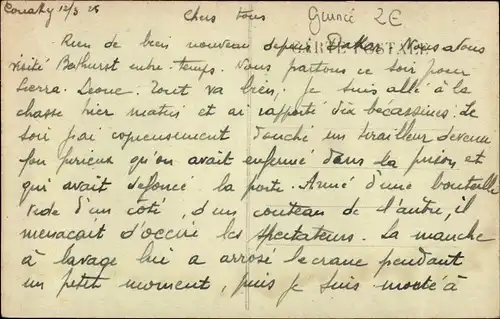 Conakry 12/3 28 Chers tous Guinée 2€
CARTE POSTALE
Rien de bien nouveau depuis Dakar. Nous avons
visité Bathurst entre-temps. Nous partons ce soir pour
Sierra-Leone. Tout va bien. Je suis allé à la
chasse hier matin et ai rapporté dix bécassines. Le
soir j'ai copieusement douché un tirailleur devenu
fou furieux qu'on avait enfermé dans la prison et
qui avait défoncé la porte. Armé d'une bouteille
vide d'un côté, d'un couteau de l'autre, il
menaçait d'occire les spectateurs. La manche
à lavage lui a arrosé le crane pendant
un petit moment, puis je suis monté à